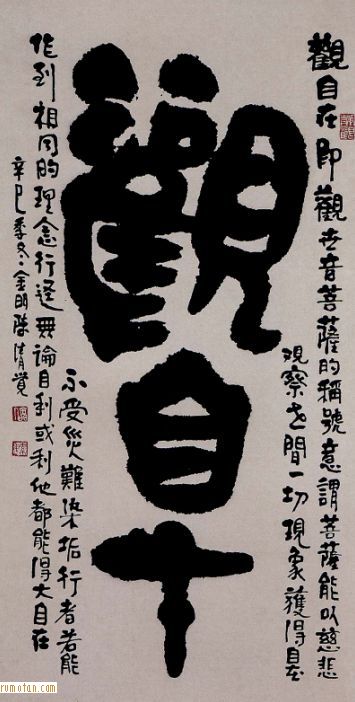 觀自在
觀自在即觀世音菩薩的稱號意謂菩薩能以慈悲
觀察世間一切現象獲得自在
不受災難染垢行者若能
作到相同的理念行逕無論自利或利他都能得大自在
辛巳季冬金門陳清覺
rumotan.com